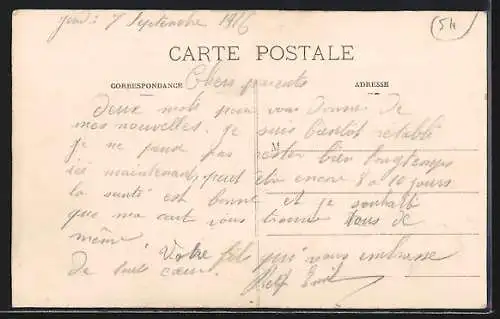 Jeudi 7 Septembre 1916
54
CARTE POSTALE
CORRESPONDANCE
ADRESSE
Chers parents
deux mots pour vous donner de
mes nouvelles. je suis bientot retabli
M
je ne pense pas rester bien longtemps
ici maintenant, peut etre encore 8 a 10 jours
la santé est bonne et je souhaite
que ma cart vous trouve tous de
même. Votre fils qui vous embrasse
de tout cœur.